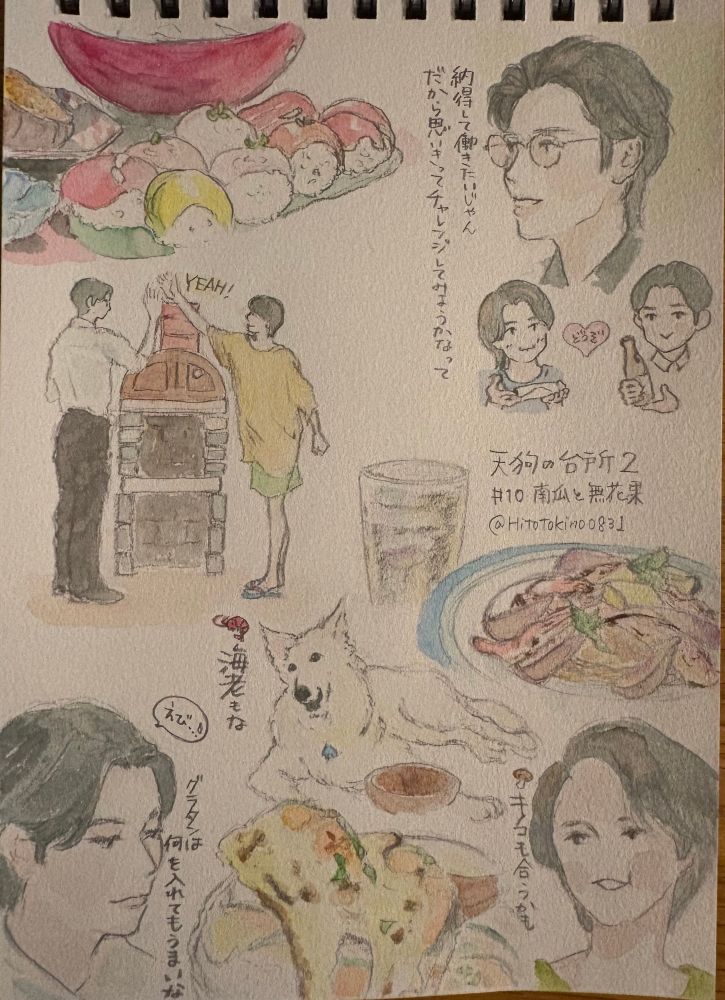 納得して働きたいじゃん
だから思いきってチャレンジしてみようかなって
YEAH!
どうぞ
天狗の台所2
#10 南瓜と無花果
@Hitotokino0831
海老もな
えび…!
グラタンは
何を入れてもうまいな
キノコも合うかも